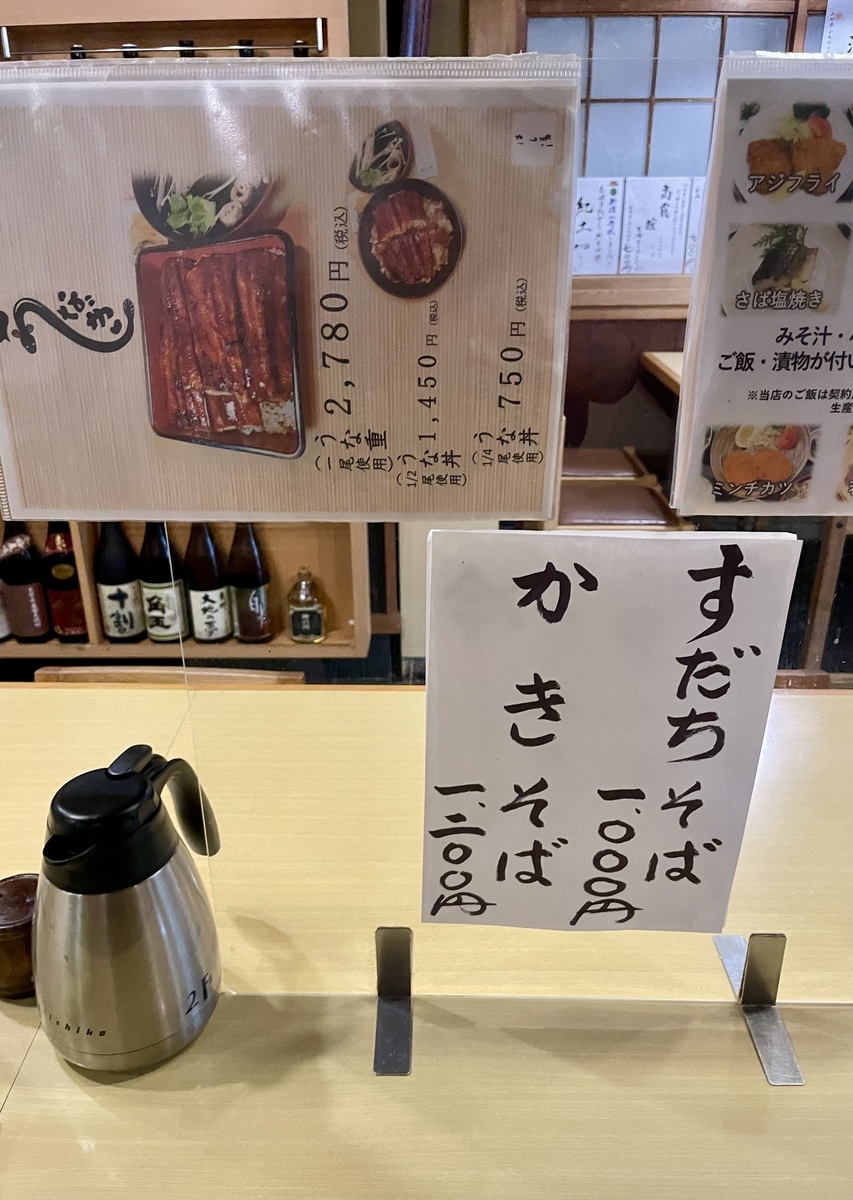 うなぎ
2,780円(税込)
うな重
(一尾使用)
1,450円(税込)
うな丼
(1/2尾使用)
750円(税込)
うな丼
(1/4尾使用)
アジフライ
さば塩焼き
みそ汁・
ご飯・漬物が付い
※当店のご飯は契約
生産
ミンチカツ
紀土
十割
角玉
大地の夢
すだちそば
一、〇〇〇円
かきそば
一、二〇〇円
2F